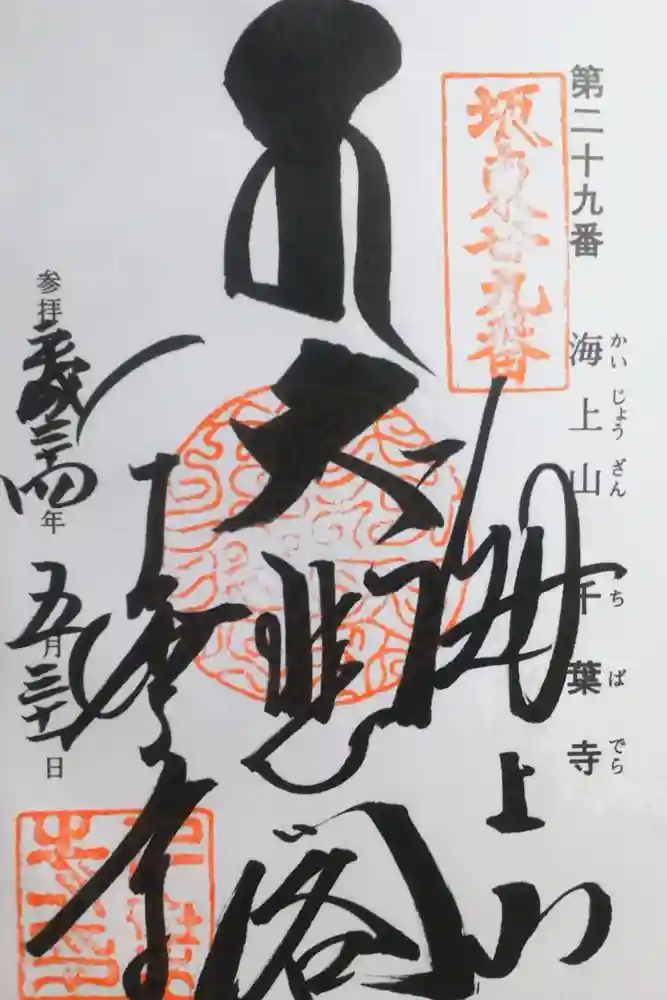 第二十九番 海上山 千葉寺
かい じょう ざん ち ば でら
坂東廿九番
海上山
大悲閣
千葉寺
参拝平成二十四年五月日